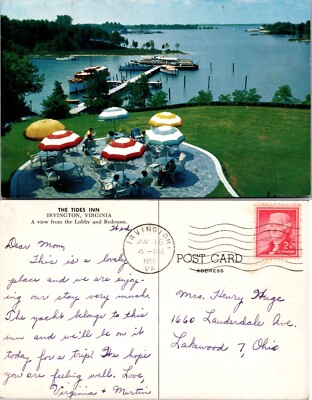 THE TIDES INN
IRVINGTON, VIRGINIA
A view from the Lobby and Bedroom.
Wed.
Dear Mom,
This is a lovely
place and we are enjoy-
ing our stay very much.
The yacht belongs to this
inn and we'll be on it
today for a trip! We hope
you are feeling well. Love,
Virginia & Martin
IRVINGTON
16
4 - PM
VA.
POST CARD
ADDRESS
2¢
Mrs. Henry Huge
1660 Lauderdale Ave.
Lakewood 7, Ohio